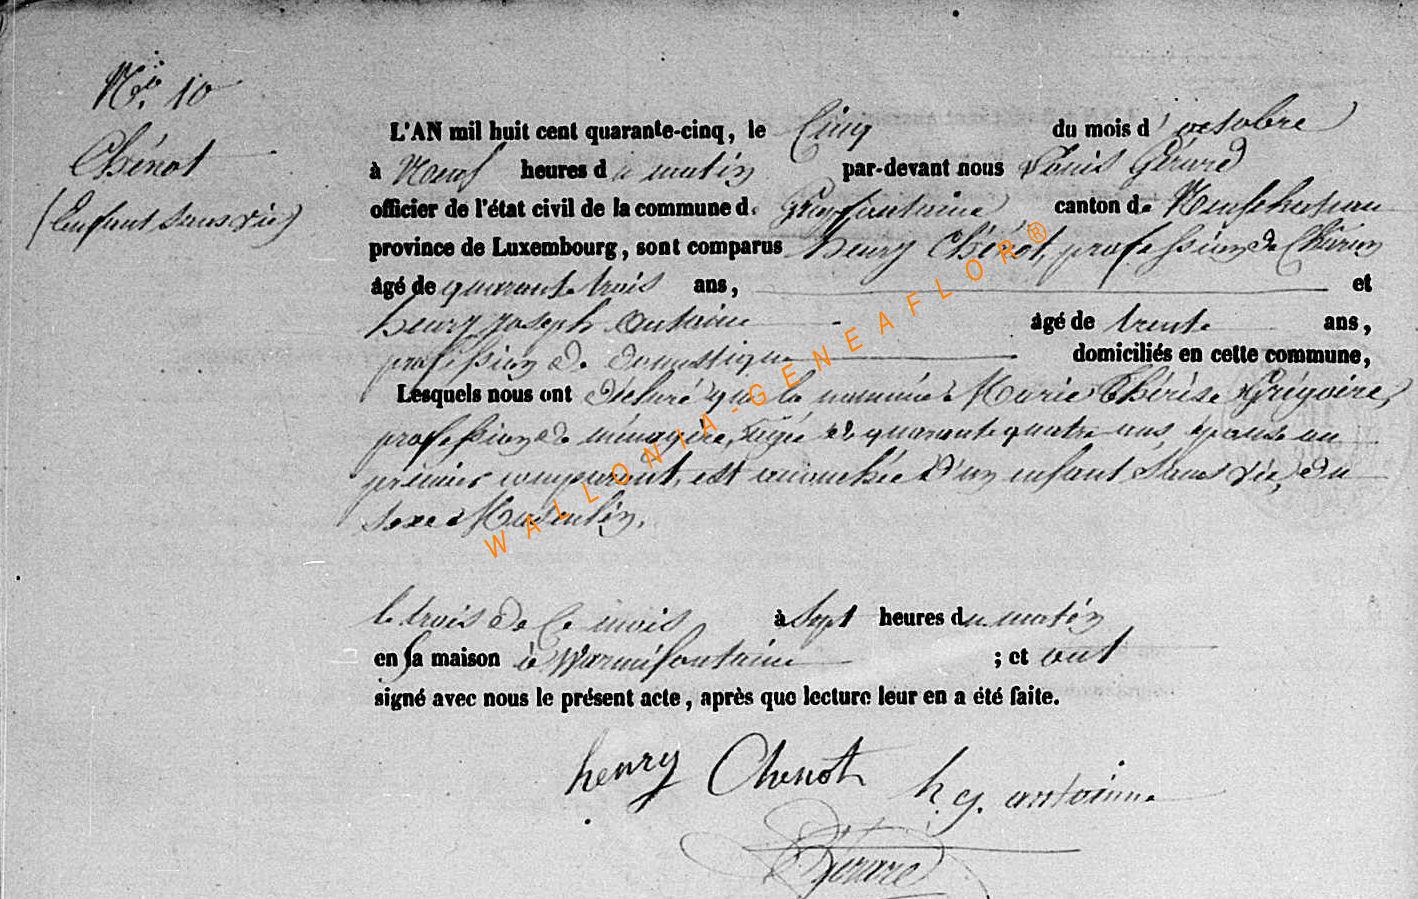 No. 10
Chénot
(Enfant sans vie)
L'AN mil huit cent quarante-cinq, le Cinq du mois d'octobre
à Neuf heures du matin par-devant nous Louis Gérard
officier de l'état civil de la commune de Grapfontaine canton de Neufchateau
province de Luxembourg, sont comparus henry Chénot, profession de Charon
âgé de quarante trois ans, et
henry joseph antoine âgé de trente ans,
profession de domestique domiciliés en cette commune,
Lesquels nous ont déclaré que la nommée Marie Thérèse Grégoire,
profession de ménagère, agée de quarante quatre ans, épouse au
premier comparant, est accouchée d'un enfant sans vie, du
sexe Masculin.
le trois de Ce mois à Sept heures du matin
en sa maison à Warmifontaine ; et ont
signé avec nous le présent acte, après que lecture leur en a été faite.
henry Chenot h. j. antoinne
Gérard
WALLONIA-GENEAFLOR®